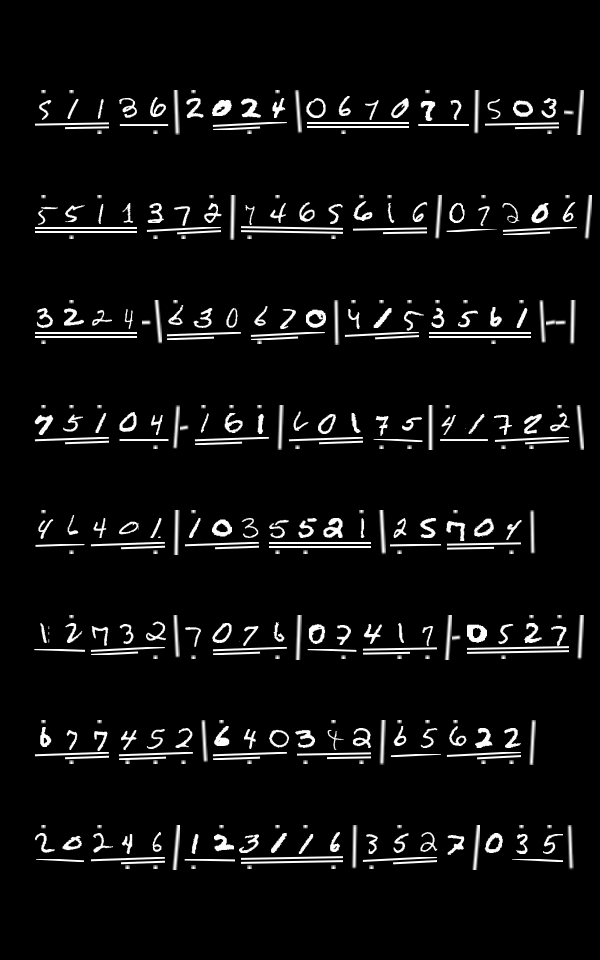 5 1 1 3 6 | 2 0 2 4 | 0 6 7 0 7 7 | 5 0 3 - |
5 5 1 1 3 7 2 | 7 4 6 5 6 1 6 | 0 7 2 0 6 |
3 2 2 4 - | 6 3 0 6 7 0 | 4 1 5 3 5 6 1 | - - |
7 5 1 0 4 | - 1 6 1 | 6 0 1 7 5 | 4 1 7 2 2 |
4 6 4 0 1 | 1 0 3 5 5 2 1 | 2 5 7 0 4 |
1 2 7 3 2 | 7 0 7 6 | 0 7 4 1 7 | - 0 5 2 7 |
6 7 7 4 5 2 | 6 4 0 3 4 2 | 6 5 6 2 2 |
2 0 2 4 6 | 1 2 3 1 1 6 | 3 5 2 7 | 0 3 5 |